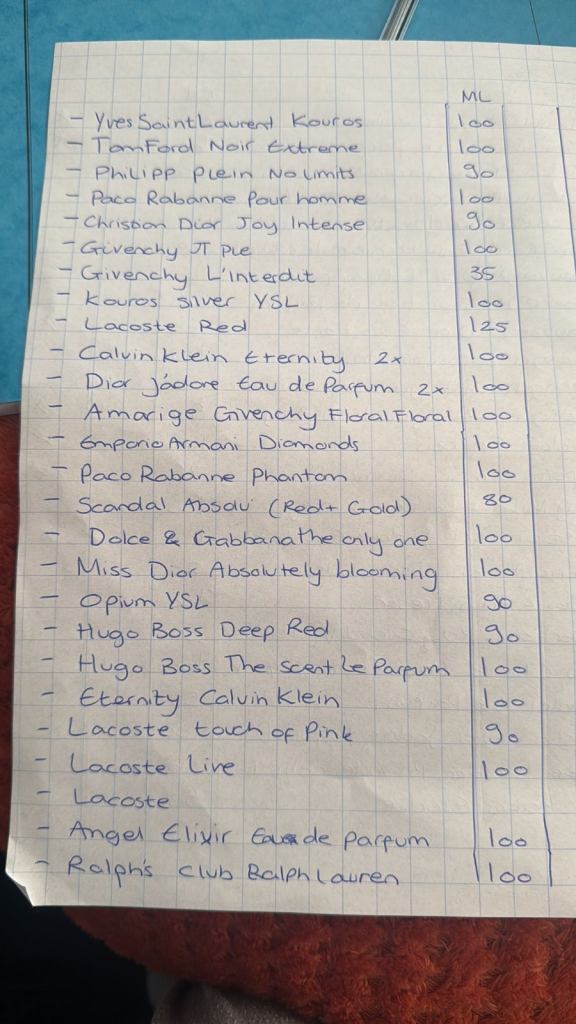 ML
- Yves Saint Laurent Kouros 100
- Tom Ford Noir Extreme 100
- Philipp Plein No limits 90
- Paco Rabanne Pour homme 100
- Christian Dior Joy Intense 90
- Givenchy π Pie 100
- Givenchy L'interdit 35
- Kouros silver YSL 100
- Lacoste Red 125
- Calvin Klein Eternity 2x 100
- Dior j'adore Eau de Parfum 2x 100
- Amarige Givenchy Floral Floral 100
- Emporio Armani Diamonds 100
- Paco Rabanne Phantom 100
- Scandal Absolu (Red + Gold) 80
- Dolce & Gabbana the only one 100
- Miss Dior Absolutely blooming 100
- Opium YSL 90
- Hugo Boss Deep Red 90
- Hugo Boss The Scent Le Parfum 100
- Eternity Calvin Klein 100
- Lacoste touch of Pink 90
- Lacoste Live 100
- Lacoste
- Angel Elixir Eau de parfum 100
- Ralph's club Ralph Lauren 100